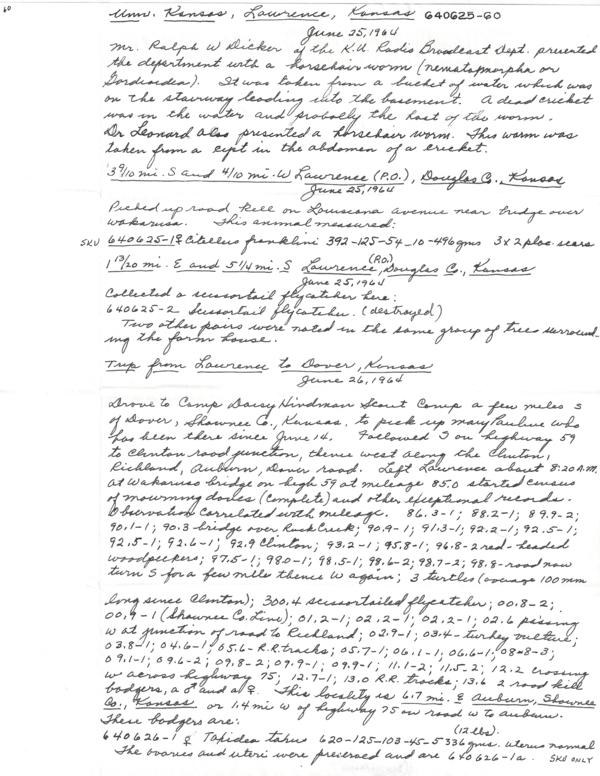 60
Univ. Kansas, Lawrence, Kansas 640625-60
June 25, 1964
Mr. Ralph W Dicker of the K.U. Radio Broadcast Dept. presented
the department with a horsehair worm (nematopmorpha or
Gordioidea). It was taken from a bucket of water which was
on the stairway leading into the basement. A dead cricket
was in the water and probally the host of the worm.
Dr Leonard also presented a horsehair worm. This worm was
taken from a cyst in the abdomen of a cricket.
3 9/10 mi. S and 4/10 mi. W Lawrence (P.O.), Douglas Co., Kansas
June 25, 1964
Picked up road kill on Louisiana avenue near bridge over
Wakarusa. This animal measured:
SKU 640625-1♀ Citellus franklini 392-125-54-10-496gms 3x2 plac. scars
1 13/20 mi. E and 5 1/4 mi. S Lawrence, (P.O.) Douglas Co., Kansas
June 25, 1964
Collected a scissortail flycatcher here:
640625-2 Scissortail flycatcher. (destroyed)
Two other pairs were noted in the same group of trees surround-
ing the farm house.
Trip from Lawrence to Dover, Kansas
June 26, 1964
Drove to Camp Daisy Hindman Scout Camp a few miles S
of Dover, Shawnee Co., Kansas, to pick up Mary Pauline who
has been there since June 14. Followed S on highway 59
to Clinton road junction, thence west along the Clinton,
Richland, Auburn, Dover road. Left Lawrence about 8:20 A.M.
At Wakarusa bridge on high 59 at mileage 85.0 started census
of mourning doves (complete) and other exceptional records.
Observation correlated with mileage. 86.3-1; 88.2-1; 89.9-2;
90.1-1; 90.3 bridge over Rock Creek; 90.9-1; 91.3-1; 92.2-1; 92.5-1;
92.5-1; 92.6-1; 92.9 Clinton; 93.2-1; 95.8-1; 96.8-2 red-headed
woodpeckers; 97.5-1; 98.0-1; 98.5-1; 98.6-2; 98.7-2; 98.8-road now
turn S for a few mlls thence W again; 3 turtles (average 100 mm
long since Clinton); 300.4 scissortailed flycatcher; 00.8-2;
00.9-1 (Shawnee Co. Line); 01.2-1; 02.2-1; 02.2-1; 02.6 pissing
W at junction of road to Richland; 02.9-1; 03.4-turkey vulture;
03.8-1; 04.6-1; 05.6-R.R. tracks; 05.7-1; 06.1-1; 06.6-1; 08=8-3;
09.1-1; 09.6-2; 09.8-2; 09.9-1; 09.9-1; 11.1-2; 11.5-2; 12.2 crossing
W across highway 75; 12.7-1; 13.0 R.R. tracks; 13.6 2 road kill
badgers, a ♂ and a ♀. This locality is 6.7 mi. E Auburn, Shawnee
Co., Kansas or 1.4 mi W of highway 75 on road W to Auburn.
These badgers are:
(12 lbs).
640626-1 ♀ Taxidea taxus 620-125-103-45-5336gms. uterus normal
The ovaries and uteri were preserved and are 640626-1a. SKU ONLY